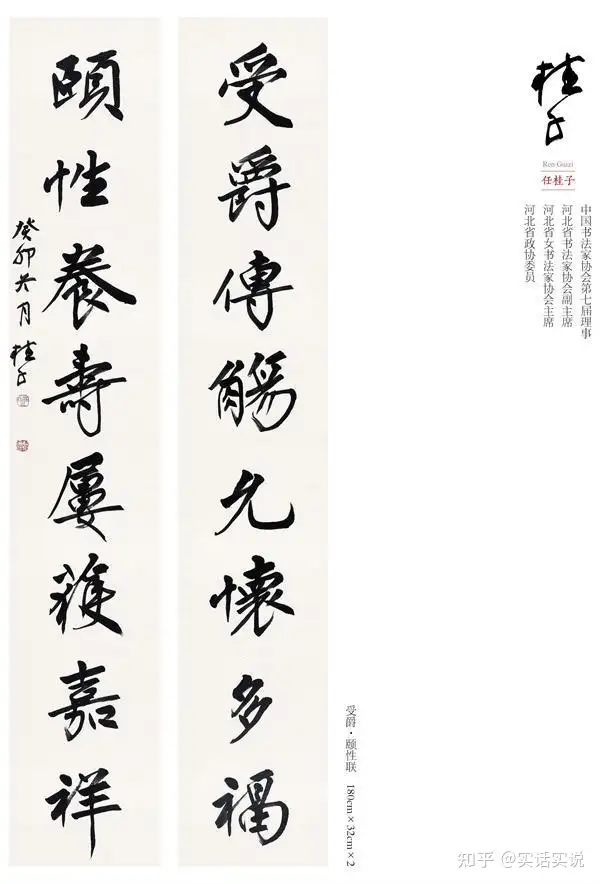 桂子
Ren Guizi
任桂子
中国书法家协会第七届理事
河北省书法家协会副主席
河北省女书法家协会主席
河北省政协委员
受爵傳觴允懷多福
頤性養壽屢獲嘉祥
癸卯冬月桂子
受爵·颐性联 180cm×32cm×2
知乎 @实话实说